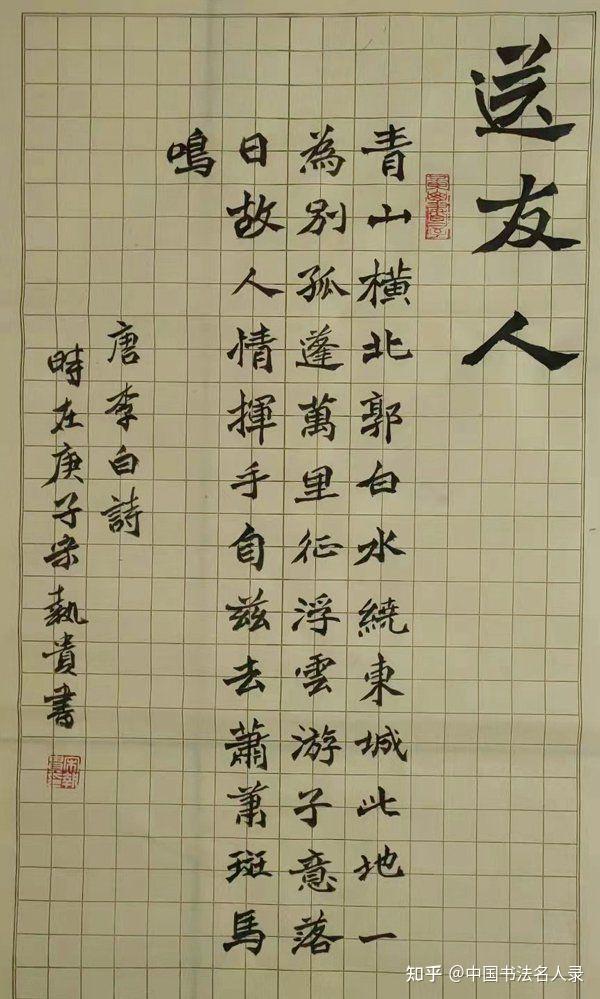 送友人
青山橫北郭白水繞東城此地一
為別孤蓬萬里征浮雲游子意落
日故人情揮手自茲去蕭蕭斑馬
鳴
唐李白詩
時在庚子宋執貴書
知乎 @中国书法名人录